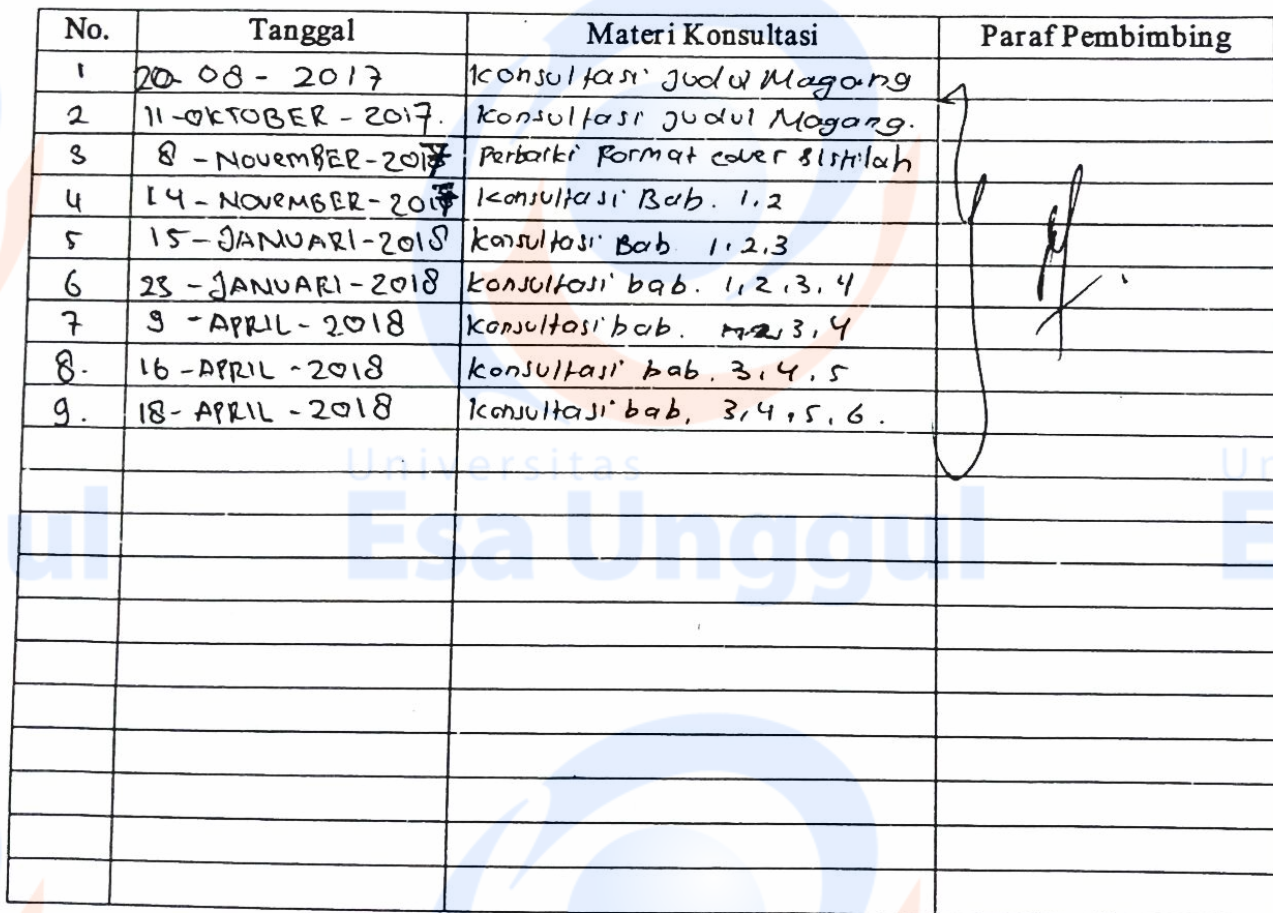 No. Tanggal Materi Konsultasi Paraf Pembimbing
1 20-08-2017 Konsultasi Judul Magang
2 11-OKTOBER-2017. Konsultasi Judul Magang.
3 8-NOVEMBER-2017 Perbaiki Format cover & Istilah
4 14-NOVEMBER-2017 Konsultasi Bab. 1.2
5 15-JANUARI-2018 Konsultasi Bab 1.2.3
6 23-JANUARI-2018 Konsultasi bab. 1,2,3,4
7 9-APRIL-2018 Konsultasi bab. 3,4
8. 16-APRIL-2018 Konsultasi bab. 3,4,5
9. 18-APRIL-2018 Konsultasi bab, 3,4,5,6.
Universitas Un
ul Esa Unggul E